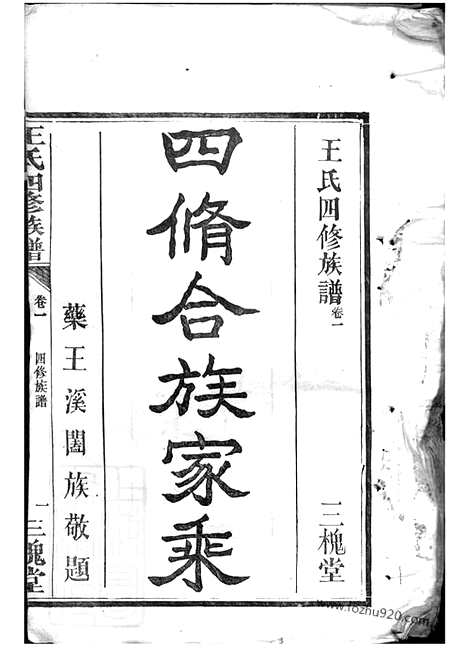 王氏四修族譜卷一
三槐堂
四脩合族家乘
藥王溪闔族敬題
王氏四修族譜
卷一
四修族譜
一
三槐堂
www.lozhu920.com